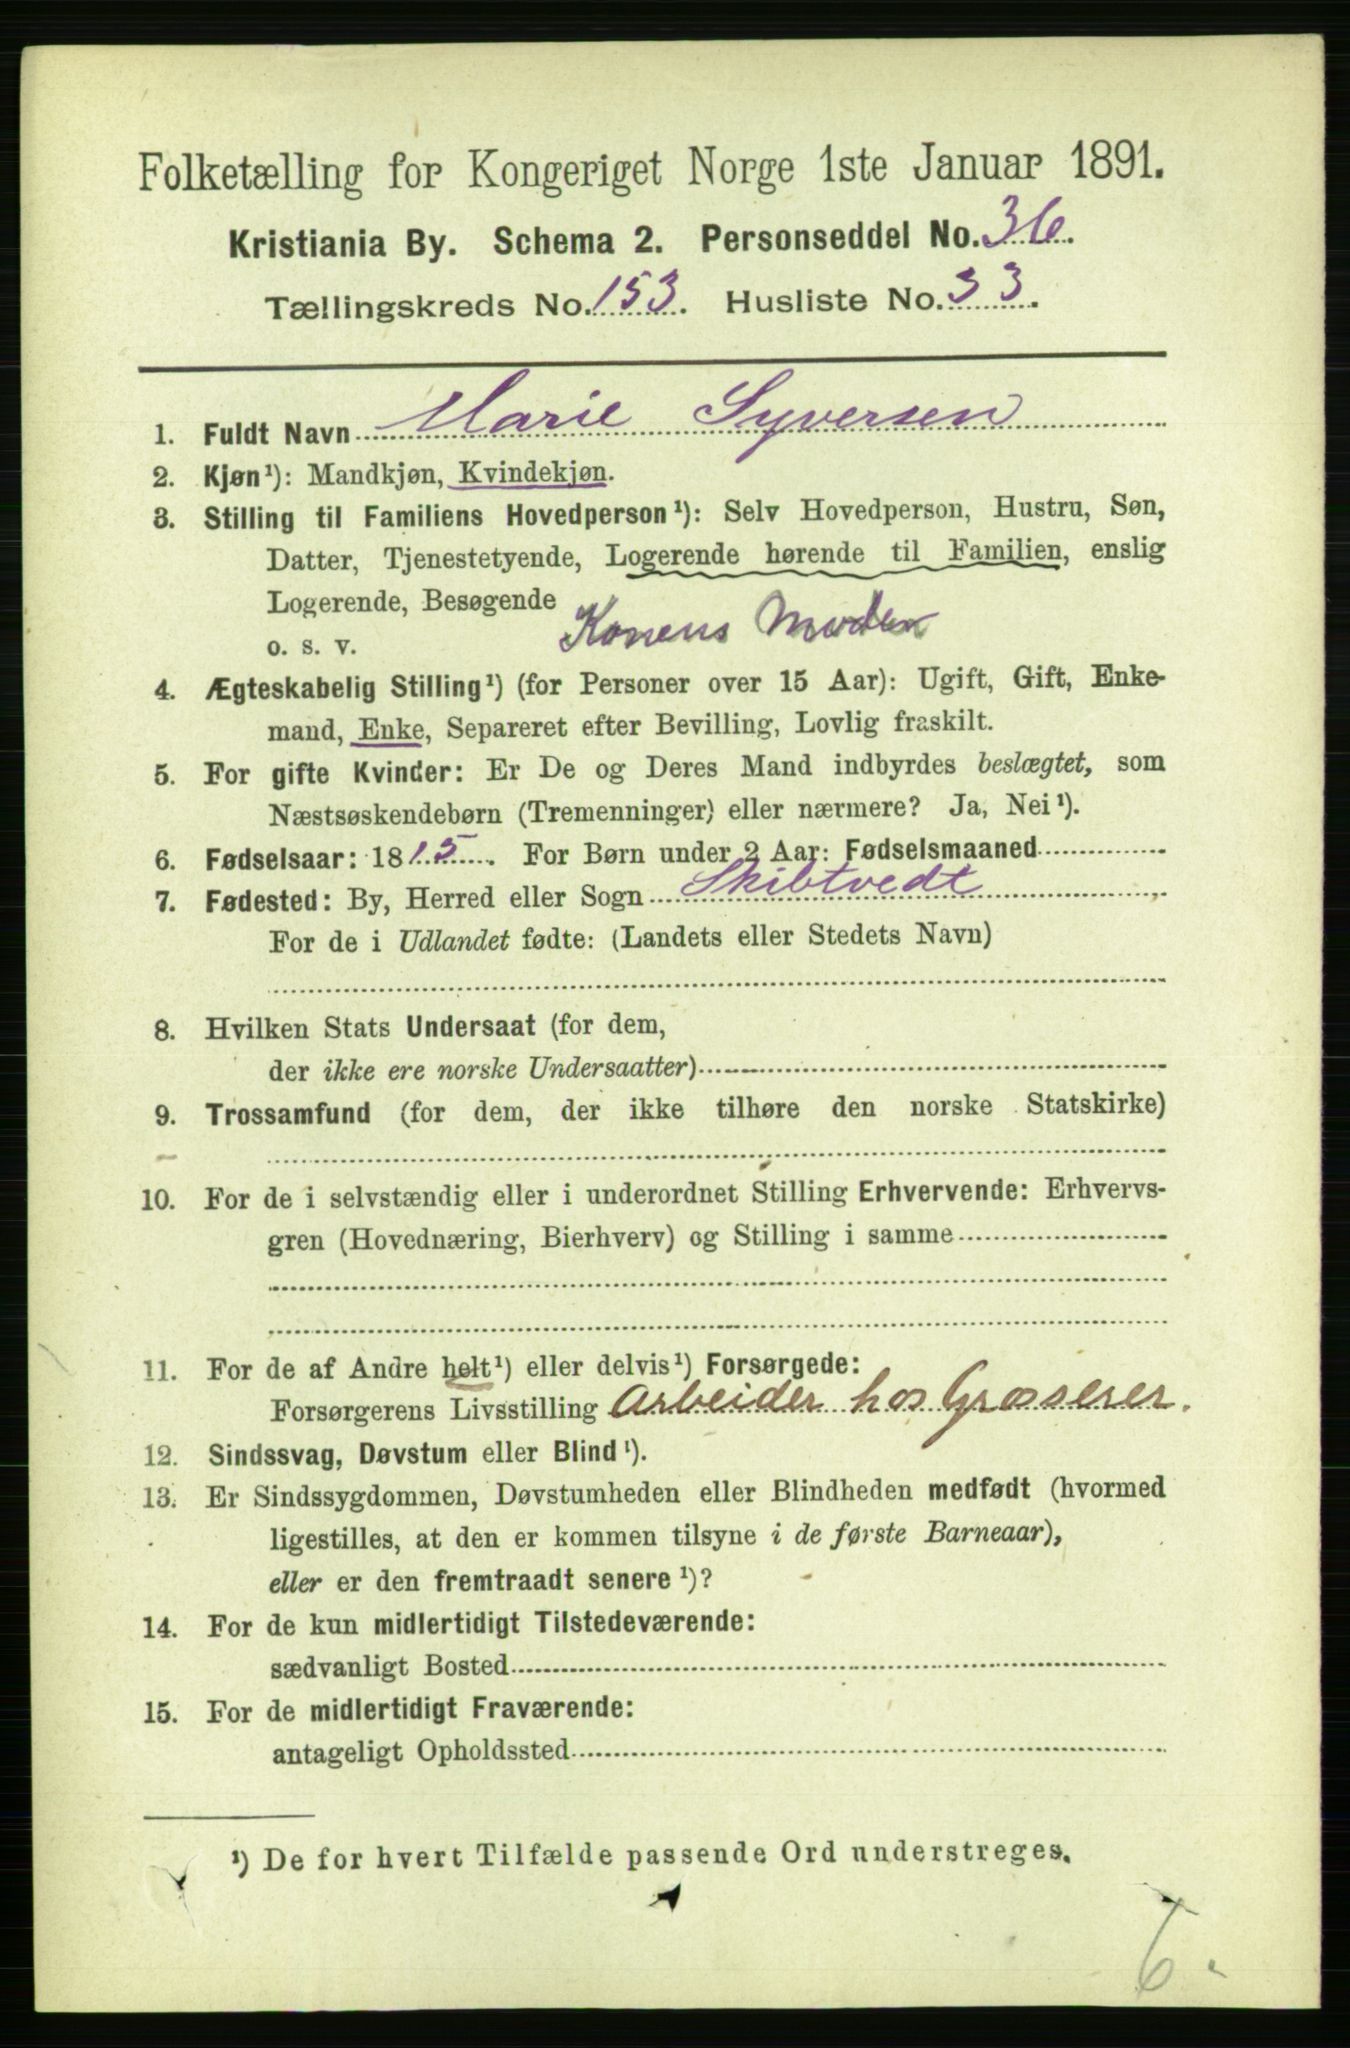 Folketælling for Kongeriget Norge 1ste Januar 1891.
Kristiania By. Schema 2. Personseddel No. 36.
Tællingskreds No. 153. Husliste No. 33.
1. Fuldt Navn Marie Syversen
2. Kjøn¹): Mandkjøn, Kvindekjøn.
3. Stilling til Familiens Hovedperson¹): Selv Hovedperson, Hustru, Søn,
Datter, Tjenestetyende, Logerende hørende til Familien, enslig
Logerende, Besøgende
o. s. v. Konens Moder
4. Ægteskabelig Stilling¹) (for Personer over 15 Aar): Ugift, Gift, Enke-
mand, Enke, Separeret efter Bevilling, Lovlig fraskilt.
5. For gifte Kvinder: Er De og Deres Mand indbyrdes beslægtet, som
Næstsøskendebørn (Tremenninger) eller nærmere? Ja, Nei¹).
6. Fødselsaar: 1815. For Børn under 2 Aar: Fødselsmaaned
7. Fødested: By, Herred eller Sogn Skibtvedt
For de i Udlandet fødte: (Landets eller Stedets Navn)
8. Hvilken Stats Undersaat (for dem,
der ikke ere norske Undersaatter)
9. Trossamfund (for dem, der ikke tilhøre den norske Statskirke)
10. For de i selvstændig eller i underordnet Stilling Erhvervende: Erhvervs-
gren (Hovednæring, Bierhverv) og Stilling i samme
11. For de af Andre helt¹) eller delvis¹) Forsørgede:
Forsørgerens Livsstilling Arbeider hos Grosserer.
12. Sindssvag, Døvstum eller Blind¹).
13. Er Sindssygdommen, Døvstumheden eller Blindheden medfødt (hvormed
ligestilles, at den er kommen tilsyne i de første Barneaar),
eller er den fremtraadt senere¹)?
14. For de kun midlertidigt Tilstedeværende:
sædvanligt Bosted
15. For de midlertidigt Fraværende:
antageligt Opholdssted
¹) De for hvert Tilfælde passende Ord understreges.
6.